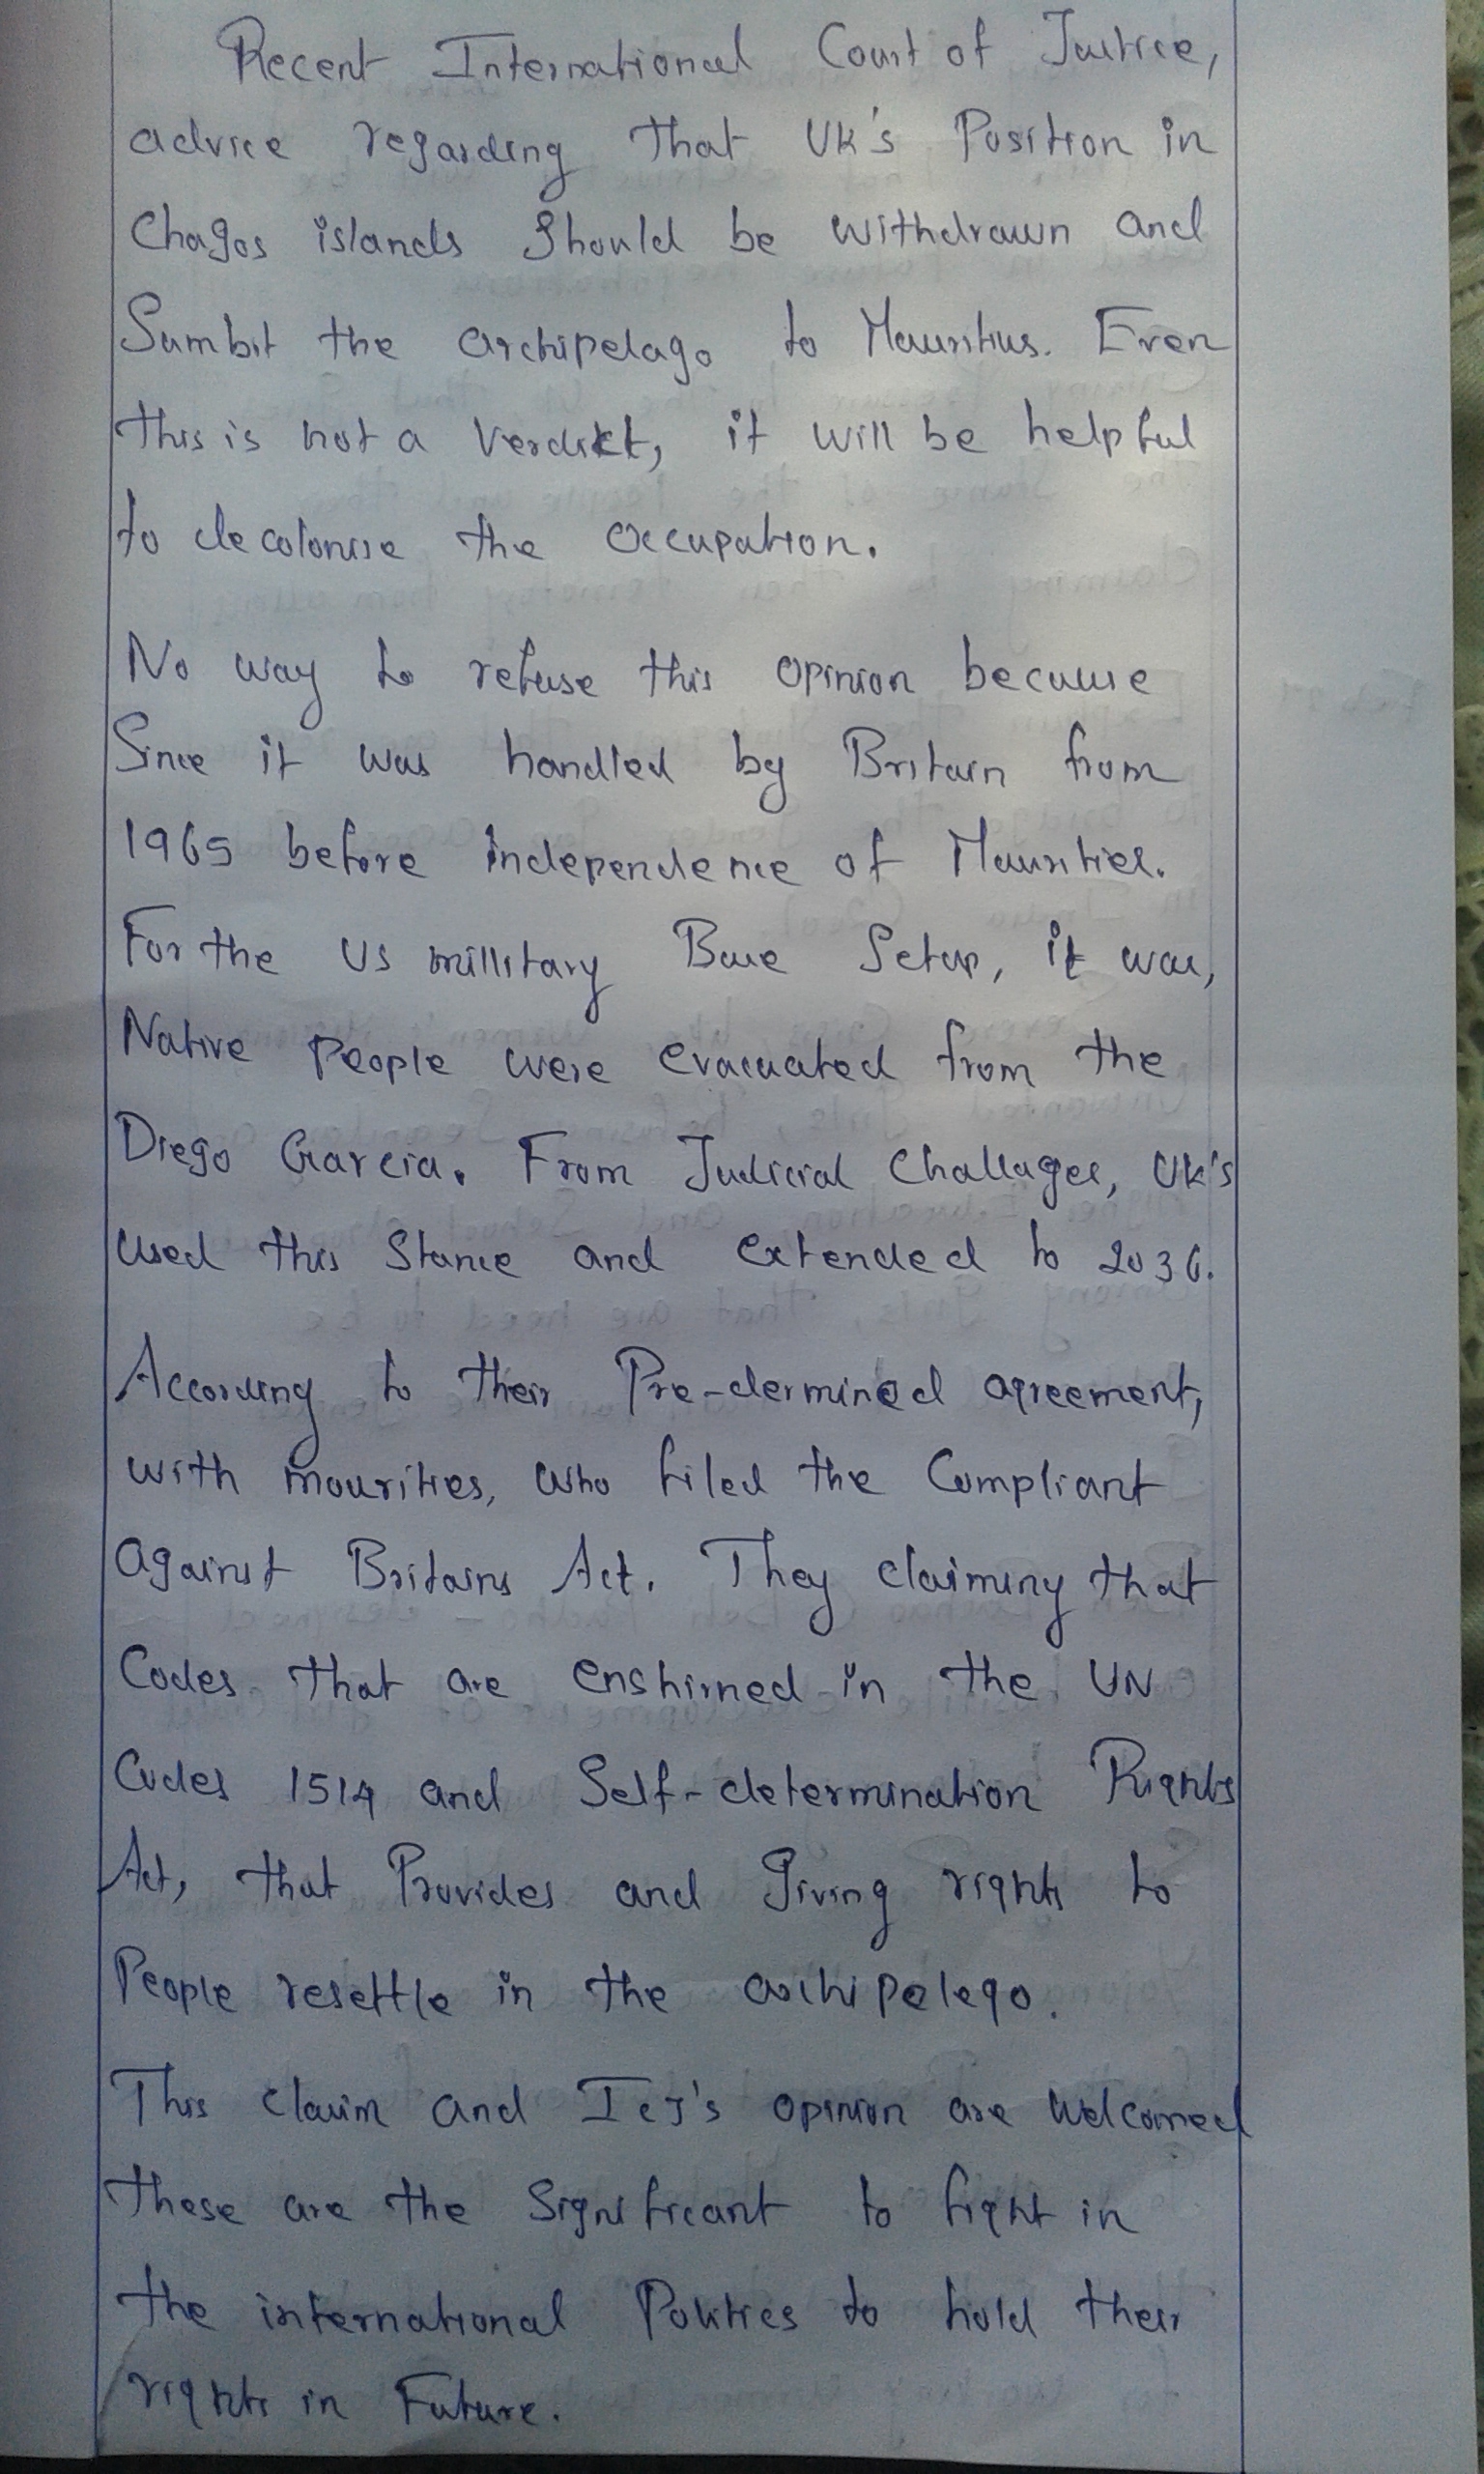 Recent International Court of Justice,
advice regarding that UK's Position in
Chagos islands should be withdrawn and
Sumbit the archipelago to Mauritius. Even
this is not a Verdict, it will be helpful
to decolonise the occupation.
No way to refuse this opinion because
Since it was handled by Britain from
1965 before independence of Maurities.
For the US millitary Base Setup, it was,
Native People were evacuated from the
Diego Garcia. From Judicial Challages, UK's
used this Stance and extended to 2036.
According to their Pre-dermined agreement,
with mourities, who filed the Compliant
against Britains Act. They claiming that
Codes that are enshirned in the UN
Codes 1514 and Self-determination Rights
Act, that Provides and giving rights to
People resettle in the archipelego.
This claim and ICJ's opinion are welcomed
these are the significant to fight in
the international Politics to hold their
rights in Future.